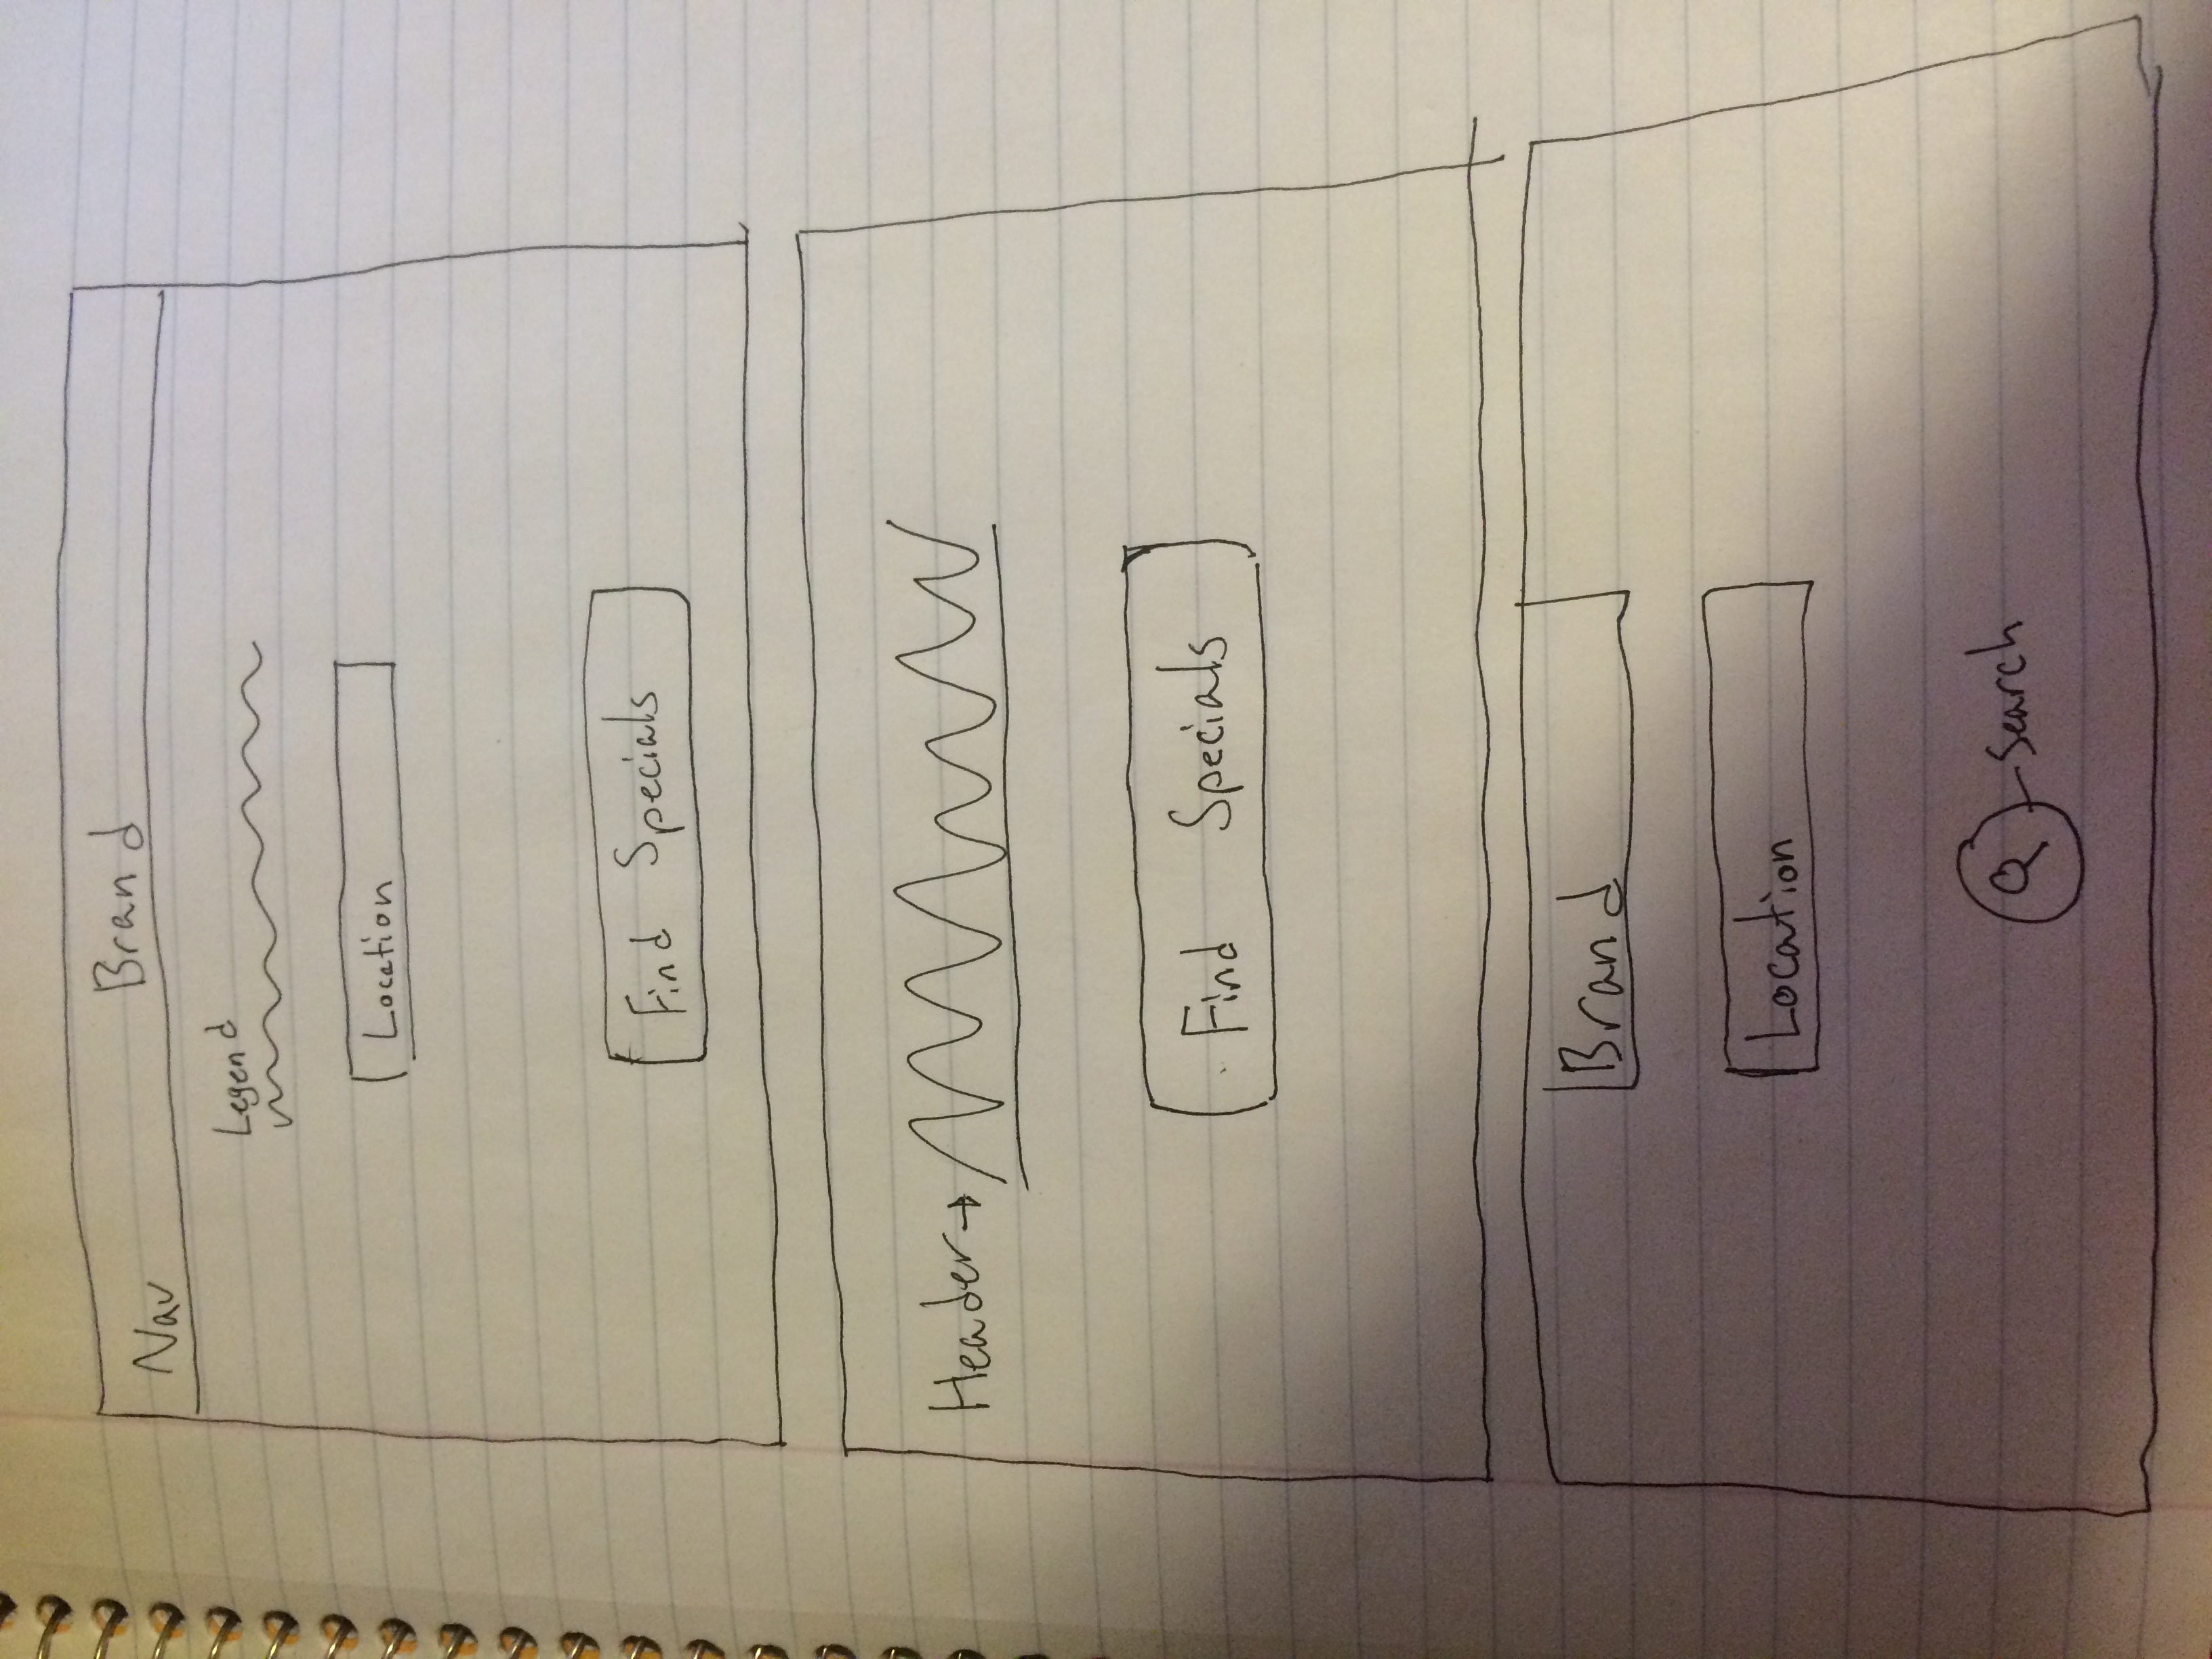 Nav Brand
Legend
Location
Find Specials
Header →
Find Specials
Brand
Location
Search